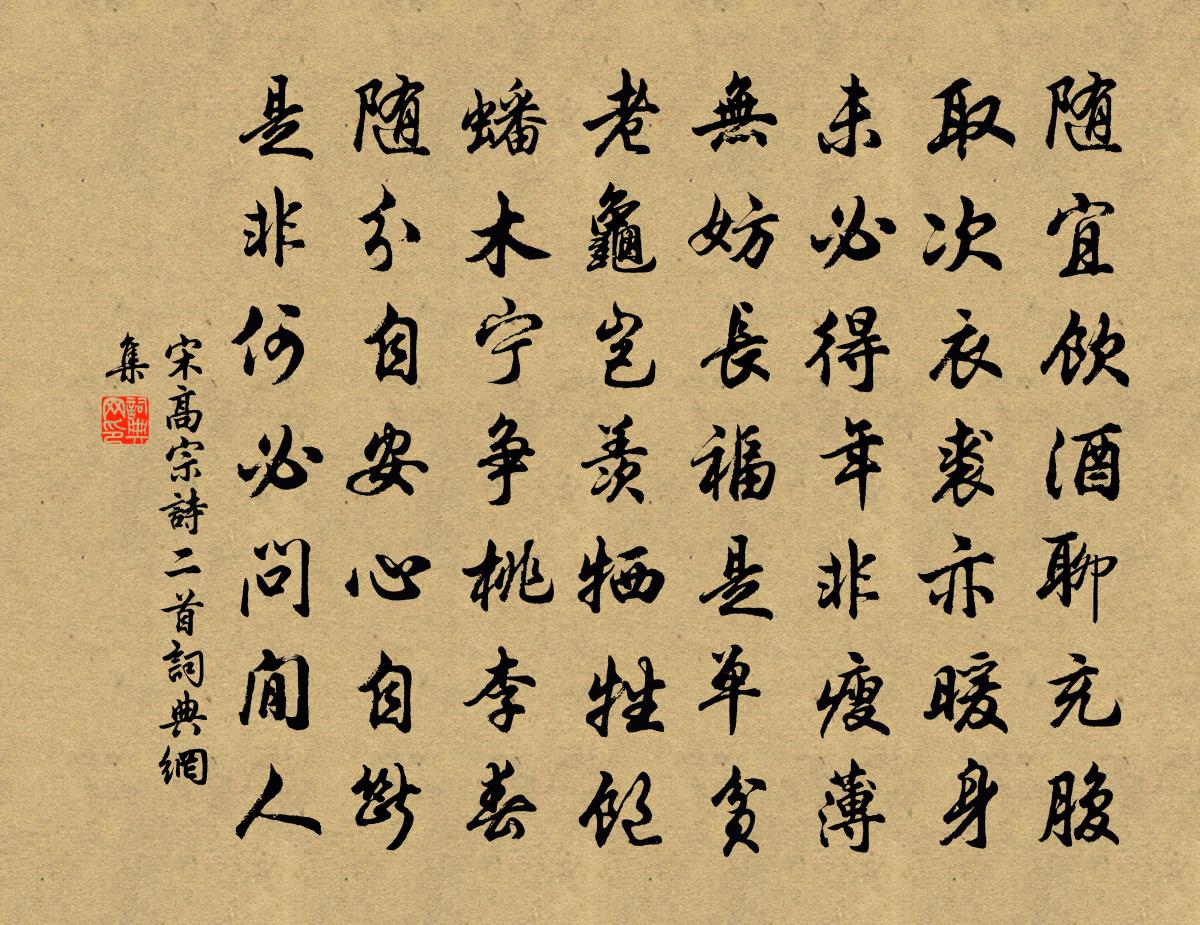 随宜飲酒聊充腹
取次衣裘亦暖身
未必得年非瘦薄
無妨長福是单貧
老龜岂羨牺牲飽
蟠木宁争桃李春
随分自安心自断
是非何必问閒人
宋高宗詩二首詞典網
集
詞典
网印